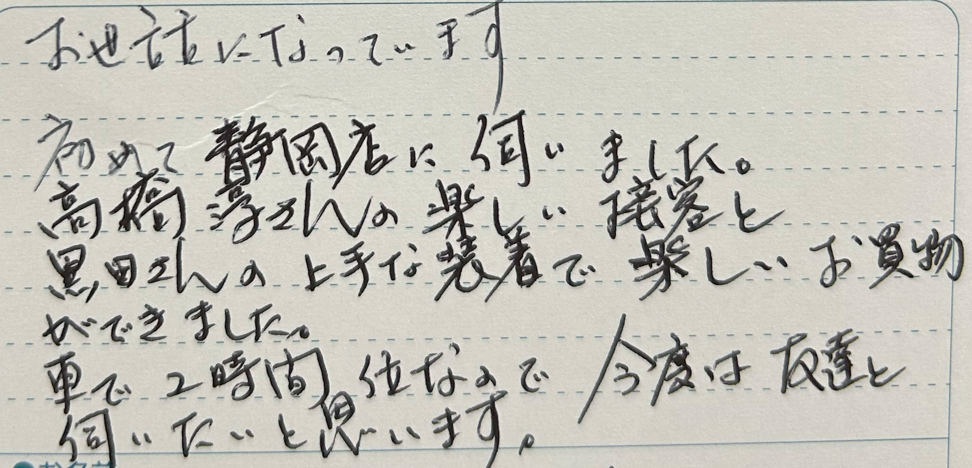 お世話になっています
初めて静岡店に伺いました。
高橋淳さんの楽しい接客と
黒田さんの上手な装着で楽しいお買物
ができました。
車で2時間位なので今度は友達と
伺いたいと思います。